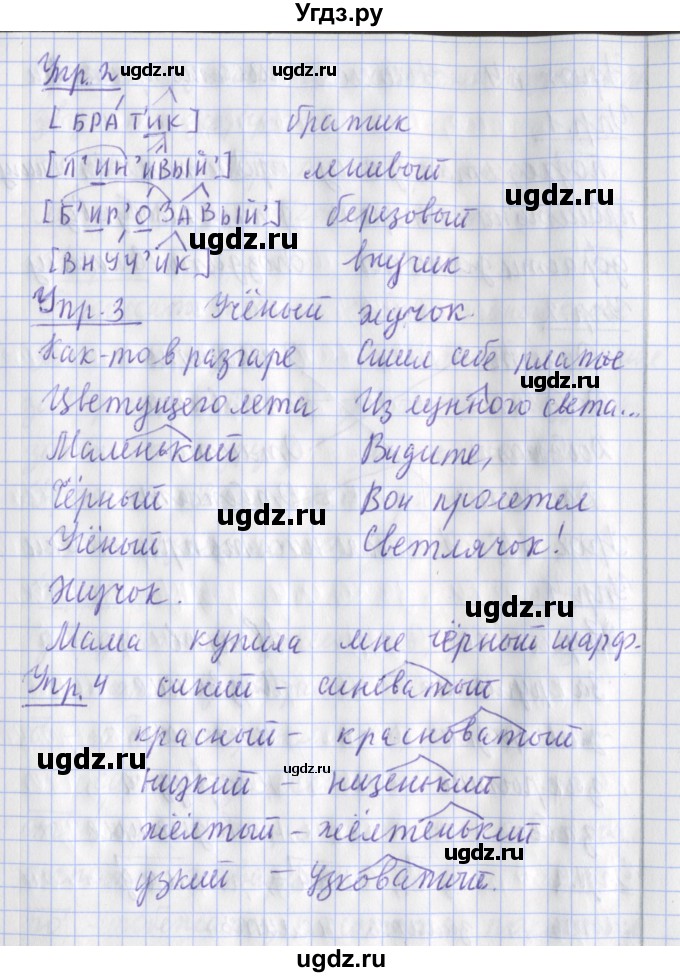 Угдз.ру
Упр. 2
[БРАТ'ИК] братик
[Л'ИН'ИВЫЙ'] ленивый
[Б'ИР'ОЗАВЫЙ'] березовый
[ВНУЧ'ИК] внучик
Упр. 3 Учёный жучок.
Как-то в разгаре Сшил себе платье
Цветущего лета Из лунного света...
Маленький Видите,
Чёрный Вон пролетел
Учёный Светлячок!
Жучок.
Мама купила мне чёрный шарф.
Упр. 4 синий - синеватый
красный - красноватый
низкий - низенький
жёлтый - жёлтенький
узкий - узковатый.
ugdz.ru
ugdz.ru
ugdz.ru
ugdz.ru
ugdz.ru
ugdz.ru
ugdz.ru
ugdz.ru
ugdz.ru
ugdz.ru
ugdz.ru
ugdz.ru